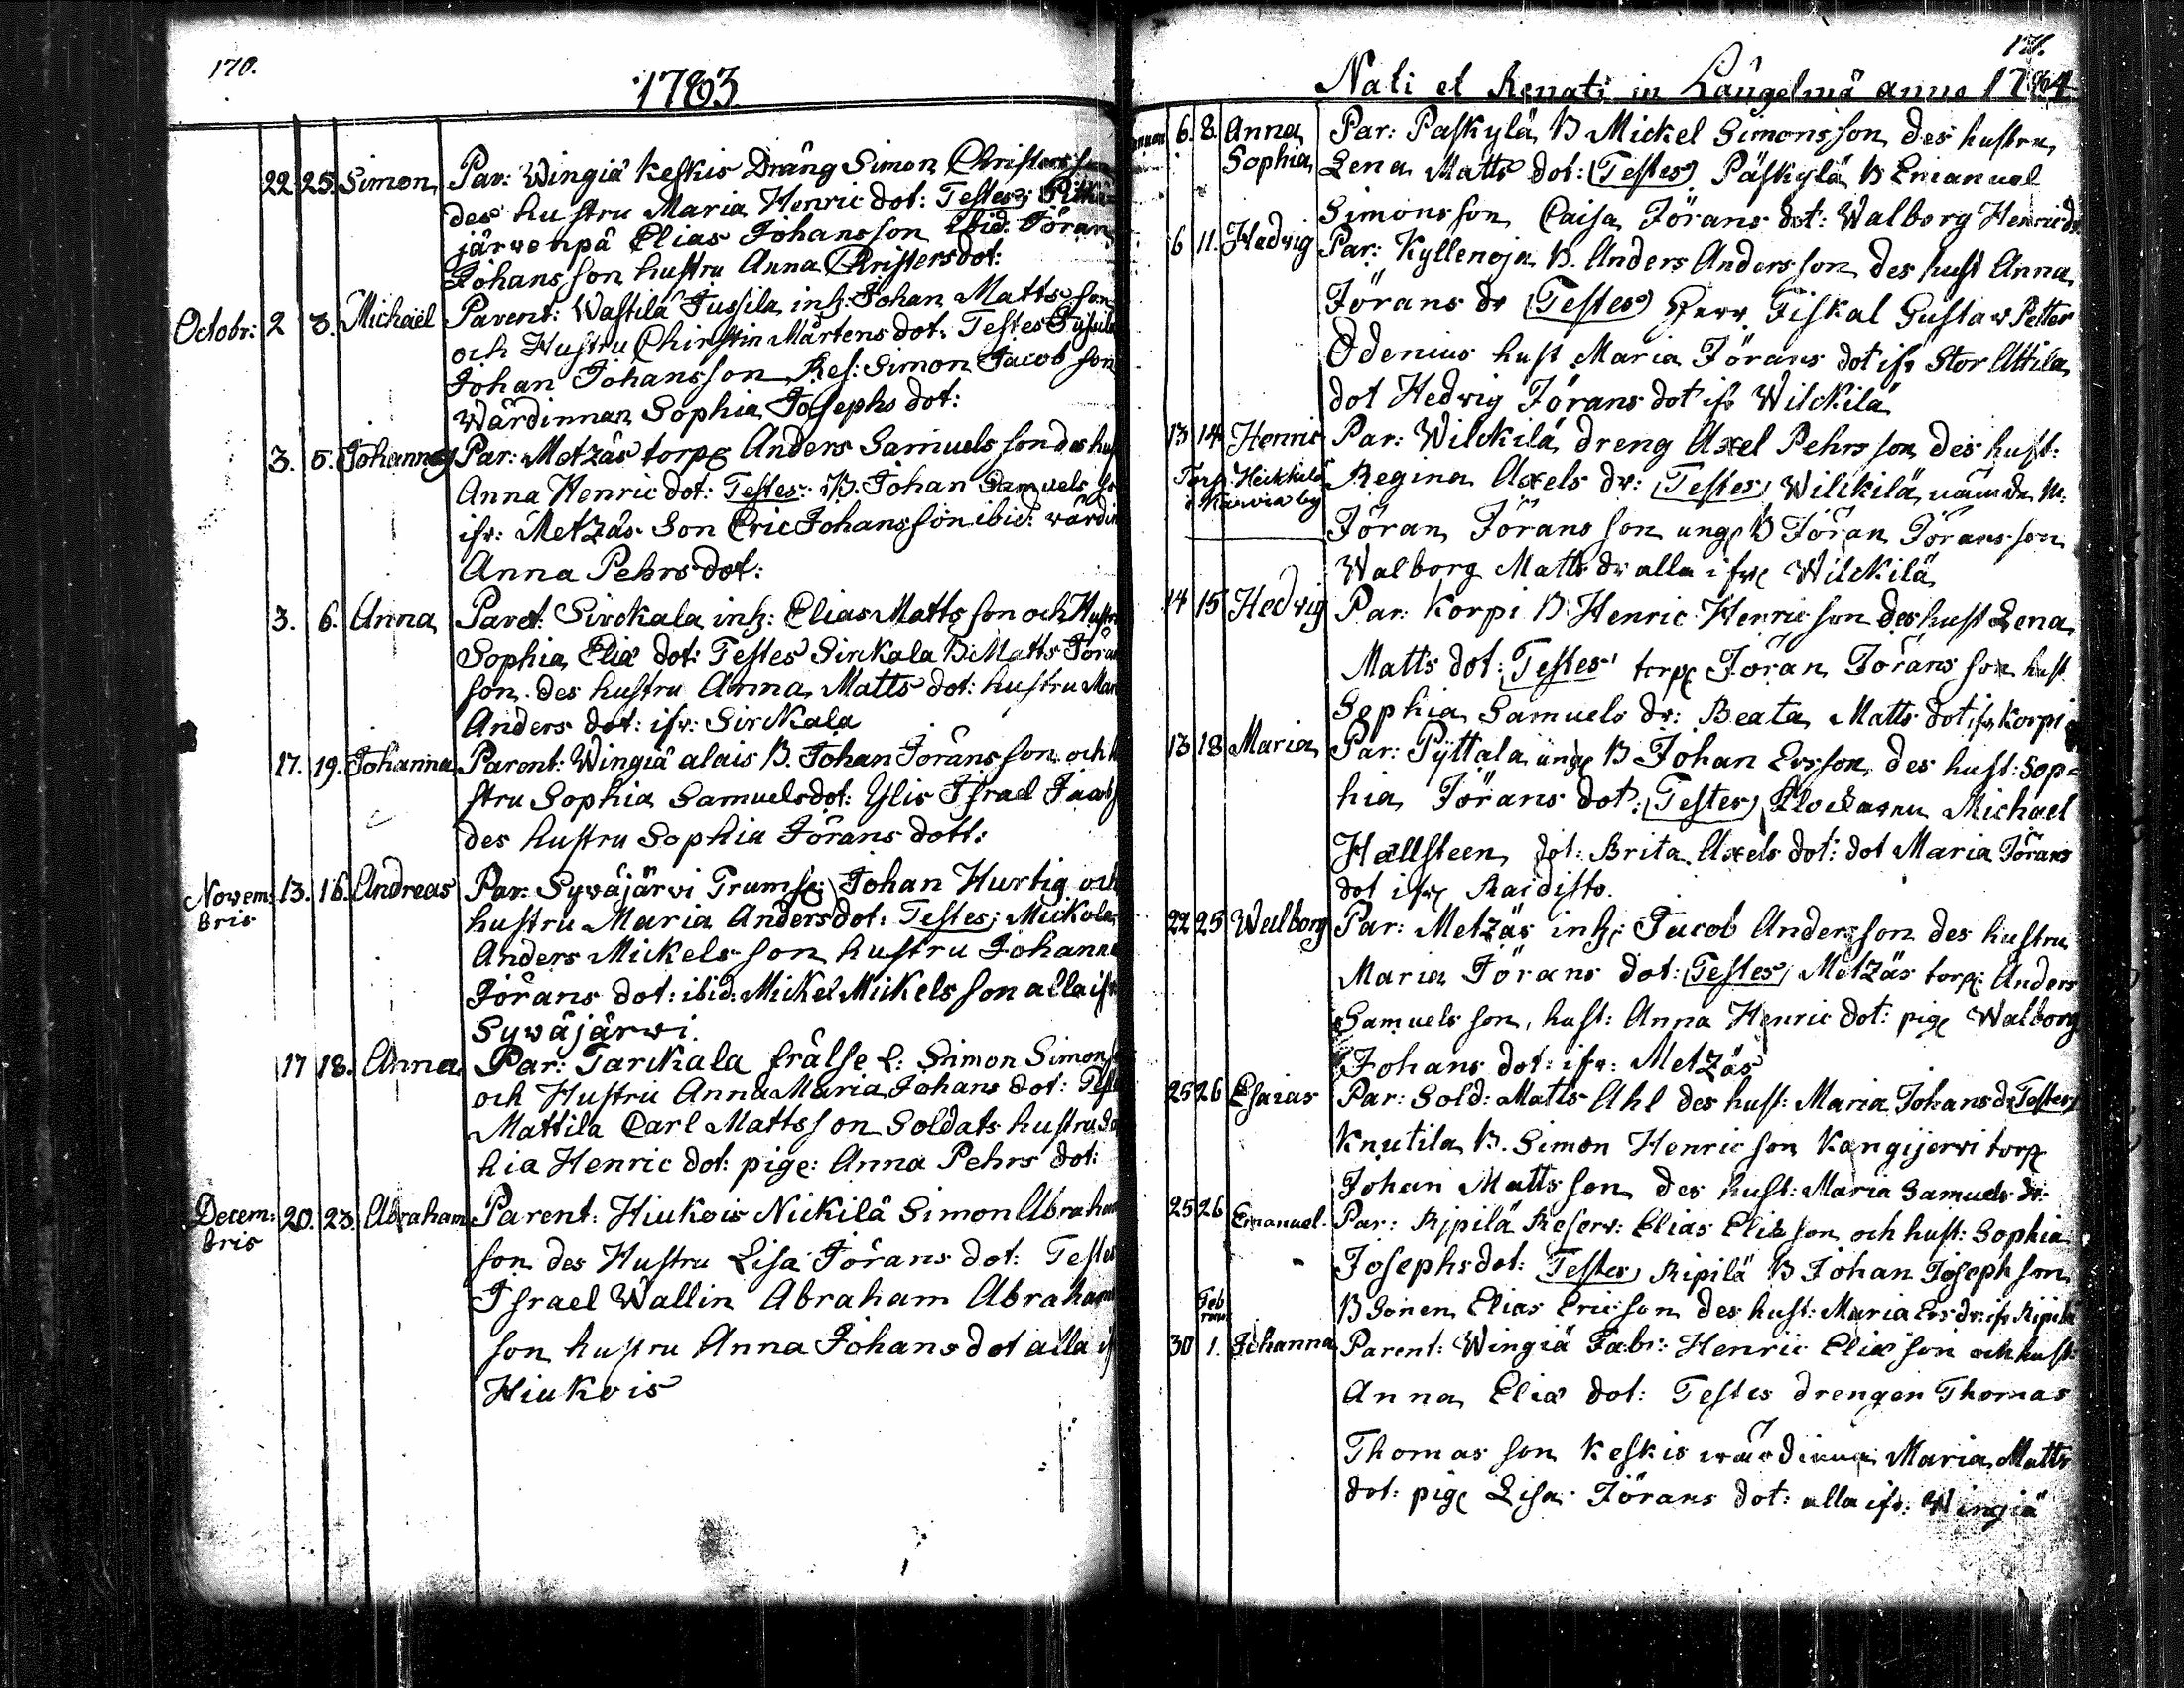 170.
1783
22. 25. Simon Par: Wingiä Keskis Dräng Simon Christersson
des hustru Maria Henric dot: Testes; Pitkä=
järwenpä Elias Johansson ibid. Jöran
Johansson hustru Anna Christersdot:
Octobr: 2 3. Michaël Parent: Wastila Jussila inh: Johan Matts son
och Hustru Chirstin Mårtens dot: Testes Jussila
Johan Johansson Res: Simon Jacob son
Wärdinnan Sophia Josephs dot:
3. 5. Johannes Par: Metzäs torp Anders Samuels son des hu
Anna Henric dot: Testes: B. Johan Samuels so
ifr: Metzäs Son Eric Johansson ibid: wärdin
Anna Pehrs dot:
3. 6. Anna Paret: Sirckala inh: Elias Matts son och Hustr
Sophia Eliæ dot: Testes Sirkala B. Matts Jöran
son des hustru Anna Matts dot: hustru Mar
Anders dot: ifr: Sirckala
17. 19. Johanna Parent: Wingiä alais B. Johan Jörans son och h
stru Sophia Samuelsdot: Ylis Israel Jacobs
des hustru Sophia Jörans dott:
Novem: 13. 16. Andreas Par: Sywäjärwi Trumsl: Johan Hurtig och
bris hustru Maria Andersdot: Testes; Mickola
Anders Mickels son hustru Johanna
Jörans dot: ibid: Mickel Mickels son alla ifr
Sywäjärwi.
17 18. Anna Par: Tarckala frälse L: Simon Simons
och Hustru Anna Maria Johans dot: Test
Mattila Carl Mattsson Soldats hustru So
hia Henric dot: pige: Anna Pehrs dot:
Decem: 20. 23. Abraham Parent: Hiukois Nickilä Simon Abraham
bris son des Hustru Lisa Jörans dot: Testes
Israel Wallin Abraham Abraham
son hustru Anna Johans dot alla if
Hiukois
171.
Nati et Renati in Längelmä anno 1784
6. 8. Anna Par: Paskylä B Mickel Simonsson des hustru
Sophia Lena Matts dot: Testes Päskylä B Emanuel
Simonsson Caisa Jörans dot: Walborg Henric dr
6 11. Hedvig Par: Kyllenoja B. Anders Andersson des hust Anna
Jörans dr Testes Herr Fiskal Gustaw Petter
Odenius hust Maria Jörans dot ifr Stor Attila
dot Hedvig Jörans dot ifr Wilckilä
13 14 Henric Par: Wilckilä dreng Axel Pehrs son des hust:
Torp Heickkilä Regina Axels dr: Testes Wilckilä nämde M.
i Karvia by
Jöran Jörans son unge B Jöran Jörans son
Walborg Matts dr alla ifr Wilckilä
14 15 Hedvig Par: Korpi B Henric Henric son des hust Lena
Matts dot: Testes torp Jöran Jörans son hust
Sophia Samuels dr: Beata Matts dot ifr Korpi
13 18 Maria Par: Pyttala unge B Johan Ersson des hust: Sop=
hia Jörans dot: Testes Klockaren Michael
Hællsteen dot: Brita Axels dot: dot Maria Jörans
dot ifr Raidisto.
22 25 Walborg Par: Metzäs inh: Jacob Andersson des hustru
Maria Jörans dot: Testes Metzäs torp: Anders
Samuels son, hust: Anna Henric dot: pige Walborg
Johans dot: ifr: Metzäs
25 26 Esaias Par: Sold: Matts Ahl des hust: Maria Johans dr Testes
Knutila B. Simon Henric son Kangijerwi torp
Johan Matts son des hust: Maria Samuels dr:
25 26 Emanuel. Par: Ripilä Reserv: Elias Eliæ son och hust: Sophia
Josephsdot: Testes Ripilä B Johan Joseph son
Feb B Sonen Elias Eric son des hust: Maria Ers dr: ifr Ripilä
30 1. Johanna Parent: Wingiä Fabr: Henric Eliæ son och hust:
Anna Eliæ dot: Testes drengen Thomas
Thomas son Keskis wärdinna Maria Matts
dot: pige Lisa Jörans dot: alla ifr: Wingiä